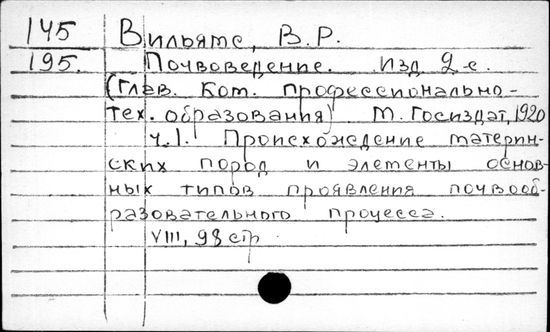 145 Вильямс, В.Р.
195. Почвоведение. Изд 2-е.
(Глав. Ком. профессионально-
тех. образования) М. Госиздат, 1920
ч.1. Происхождение материн-
ских пород и элементы основ-
ных типов проявления почвооб-
разовательного процесса.
VIII, 98 стр